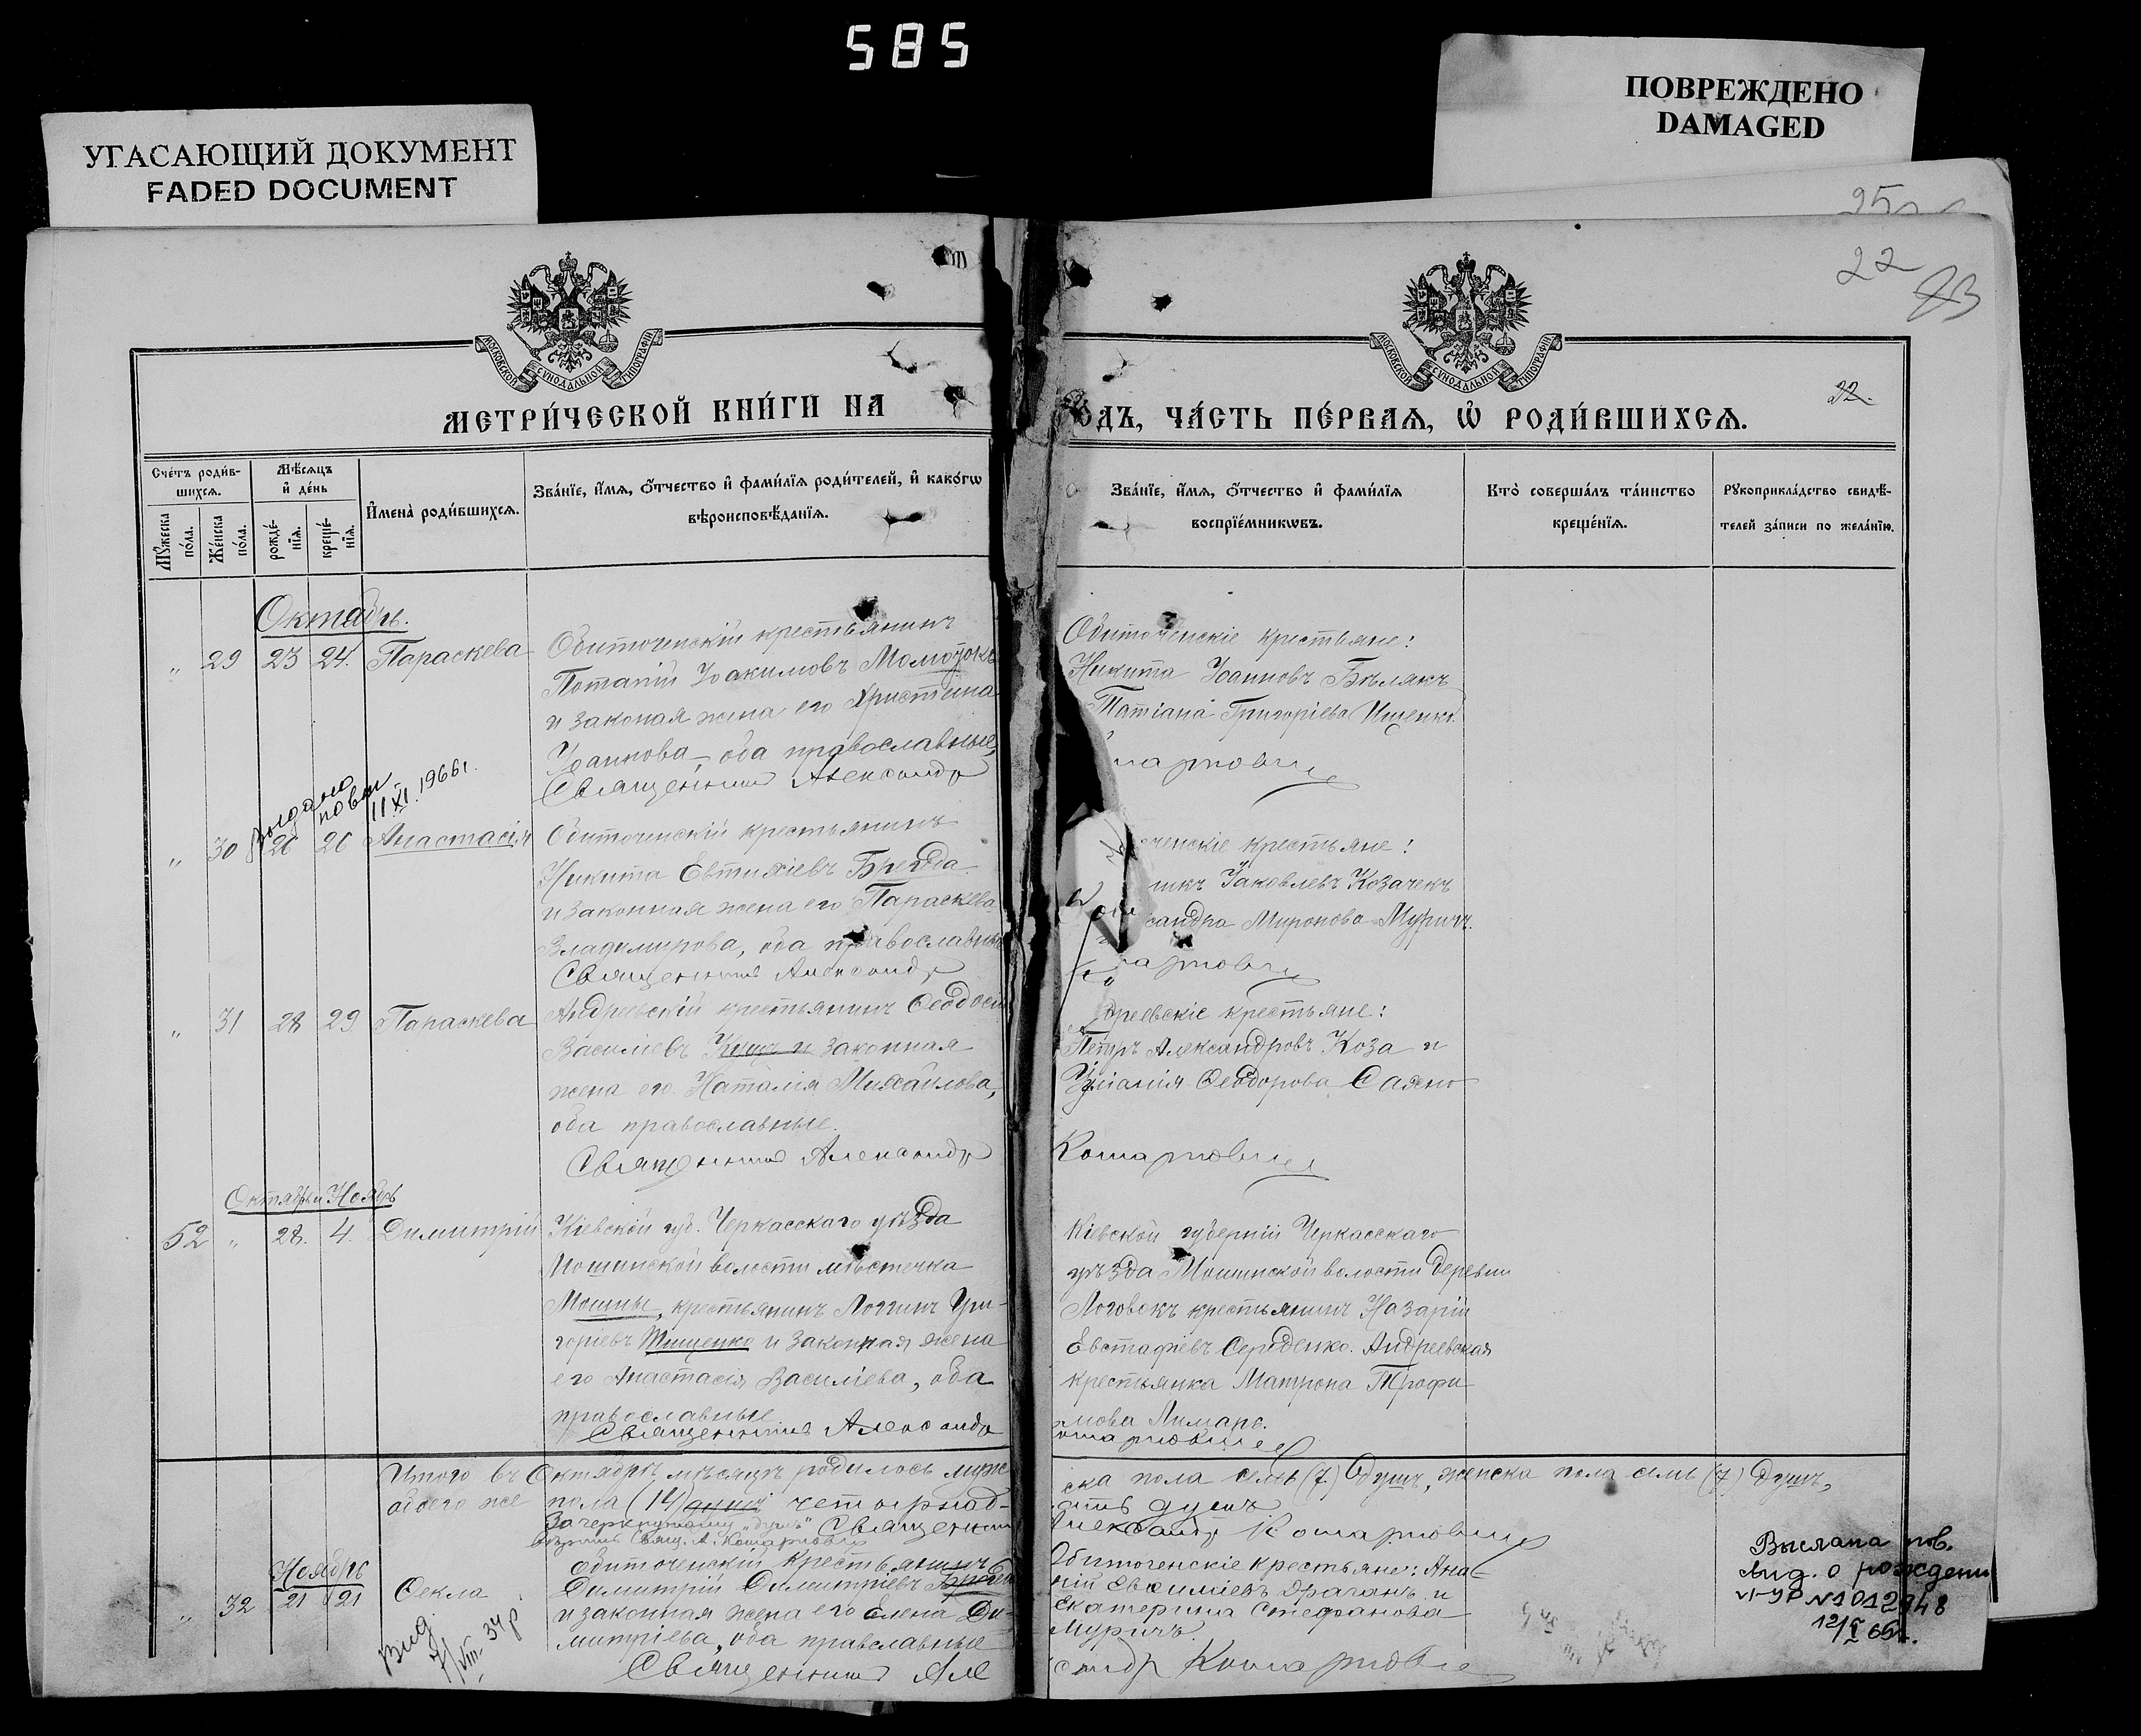 585
УГАСАЮЩИЙ ДОКУМЕНТ
FADED DOCUMENT
ПОВРЕЖДЕНО
DAMAGED
25
22
23
22.
МОСКОВСКОЙ СУНОДАЛЬНОЙ ТИПОГРАФІИ
МОСКОВСКОЙ СУНОДАЛЬНОЙ ТИПОГРАФІИ
МЕТРИ́ЧЕСКОЙ КНИ́ГИ НА
ОДЪ, ЧА́СТЬ ПЕ́РВАЯ, Ѡ РОДИ́ВШИХСЯ.
Сче́тъ роди́в-
шихся.
Мꙋ́жеска по́ла.
Же́нска по́ла.
Мѣ́сяцъ
и҆ де́нь
рожде́-
нїя.
креще́-
нїя.
И҆мена̀ роди́вшихся.
Зва́нїе, и҆́мя, ѻ҆́тчество и҆ фами́лїя роди́телей, и҆ како́гѡ
вѣроисповѣ́данїя.
Зва́нїе, и҆́мя, ѻ҆́тчество и҆ фами́лїя
воспрїе́мникѡвъ.
Кто̀ соверша́лъ та́инство
креще́нїя.
Рꙋкоприкла́дство свидѣ́-
телей за́писи по жела́нїю.
Октябрь.
„ 29 23 24. Параскева
Обиточенскій крестьянинъ
Потапій Іоакимовъ
и законая жена его Христина
Іоаннова, – оба православные,
Священникъ Александр
Обиточенскіе крестьяне:
Никита Іоанновъ Бѣлякъ
Татіана Григоріева Ищенко.
марговичъ
Выдано повт. 11 XI. 1966г.
„ 30 26 26 Анастасія
Обиточенскій крестьянинъ
Никита Евтихіевъ Бреда
и законная жена его Параскева
Владимирова, оба православны
Священникъ Александр
ченскіе крестьяне:
Іаковлевъ Козаченъ
сандра Миронова Муричъ.
„ 31 28 29 Параскева
Андреевскій крестьянинъ Ѳеодосій
Василіевъ Куцъ и законная
жена его Наталія Михайлова,
оба православные.
Священникъ Александр
дреевскіе крестьяне:
Петръ Александровъ Коза и
Уліанія Ѳеодорова Саенко
Октябрь и Ноябрь
52 „ 28. 4. Димитрій
Кіевской губ. Черкасскаго уѣзда
Мошинской волости мѣстечка
Мошны, крестьянинъ Логгинъ Гри-
горіевъ Тищенко и законная жена
его Анастасія Василіева, оба
православные
Священникъ Александр
Кіевской губерніи Черкасскаго
уѣзда Мошинской волости деревни
Логовокъ крестьянинъ Назарій
Евстафіевъ Середенко. Андреевская
крестьянка Матрона Трофи
мова Лимаръ.
Итого въ Октябрѣ мѣсяцѣ родилось муже
ска пола семь (7) душъ, женска пола семь (7) душъ,
обоего же пола (14) душъ четырнад-
ать душъ
Зачеркнутому „душъ" Священник
Александр
Ноябрь
„ 32 21 21 Ѳекла
Обиточенскій крестьянинъ
Димитрій Димитріевъ Бреда
и законная жена его Елена Ди-
митріева, оба православные
Священникъ Але
Обиточенскіе крестьяне: Ана-
ній Василіевъ Драганъ и
Екатерина Стефанова
Муричъ.
сандр
Вид.
7/VIII 34р.
Выслана пов.
свид. о рождени
VI-УР N1012948
12/I 66г.